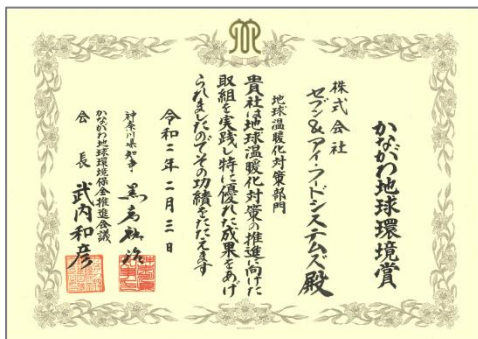 かながわ地球環境賞
株式会社
セブン&アイ・フードシステムズ殿
地球温暖化対策部門
貴社は地球温暖化対策の推進に向けた
取組を実践し特に優れた成果をあげ
られましたのでその功績をたたえます
令和二年二月三日
神奈川県知事 黒岩祐治
かながわ地球環境保全推進会議
会長 武内和彦